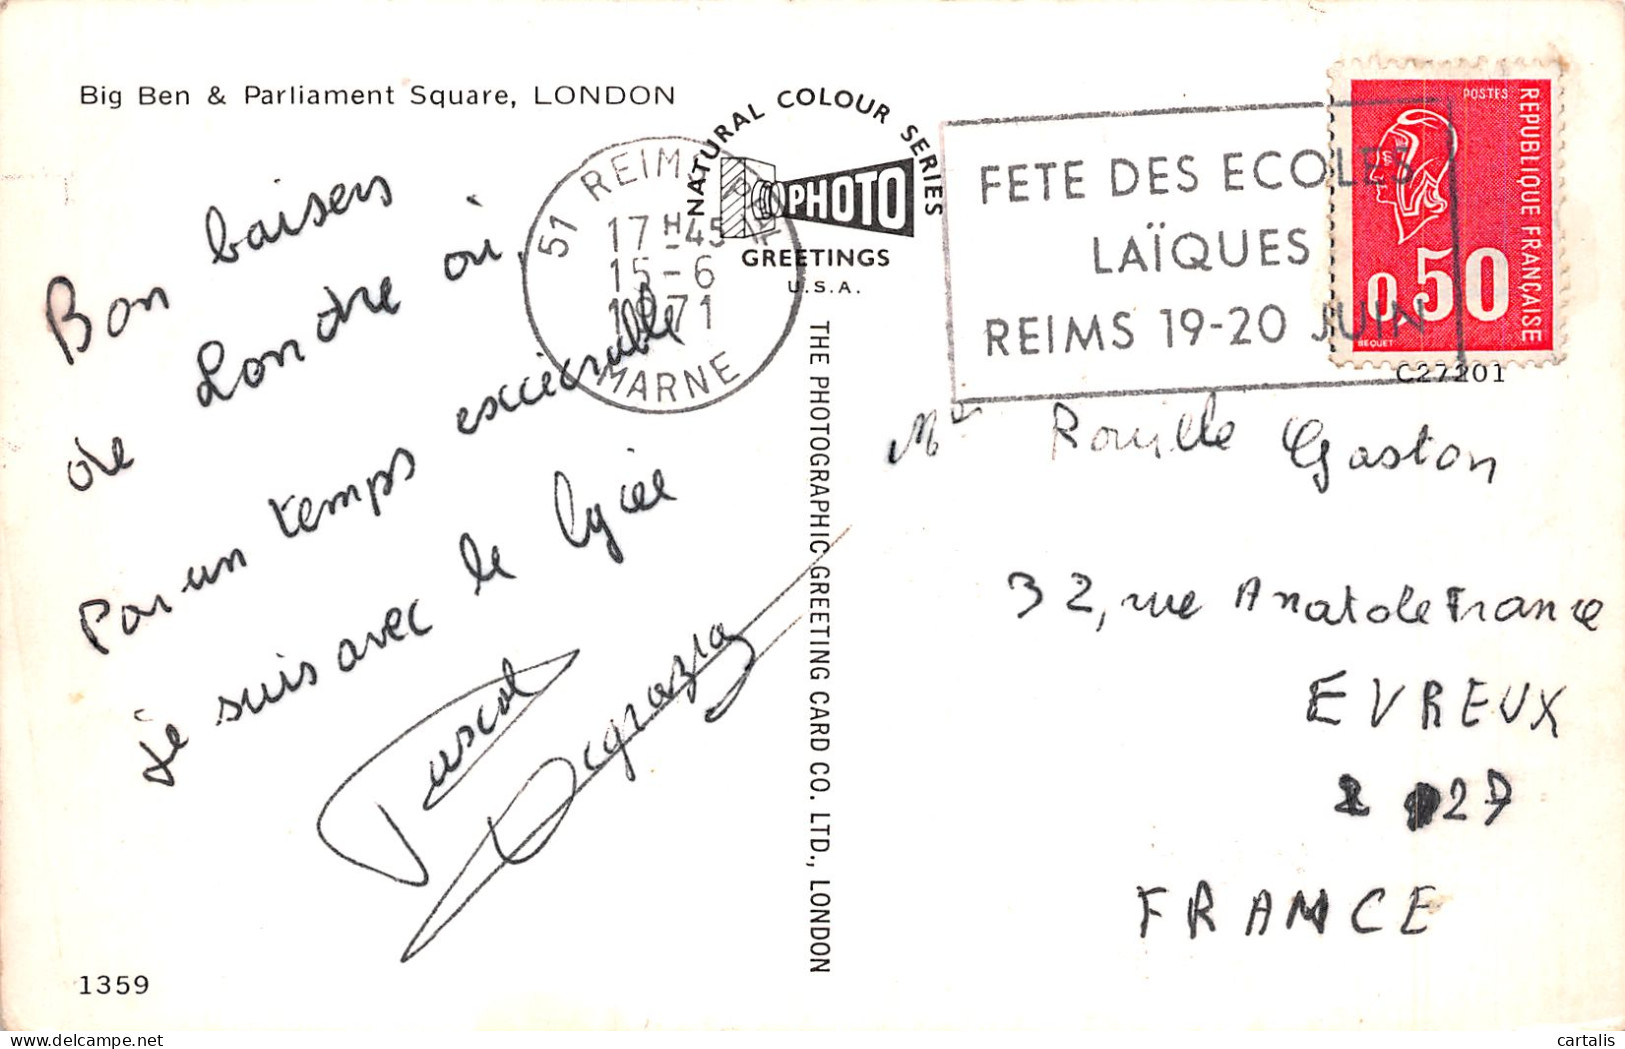 Big Ben & Parliament Square, LONDON
NATURAL COLOUR SERIES
PHOTO
GREETINGS
U.S.A.
51 REIMS
17 H 45
15-6
1971
MARNE
FETE DES ECOLES
LAÏQUES
REIMS 19-20 JUIN
POSTES
REPUBLIQUE FRANÇAISE
0,50
BEQUET
C27201
Bon baisers
de Londre où,
Par un temps exciécrable
je suis avec le lyiée
Pascal
THE PHOTOGRAPHIC GREETING CARD CO. LTD., LONDON
Mr Rouille Gaston
32, rue Anatole France
EVREUX
27
FRANCE
1359
cartalis